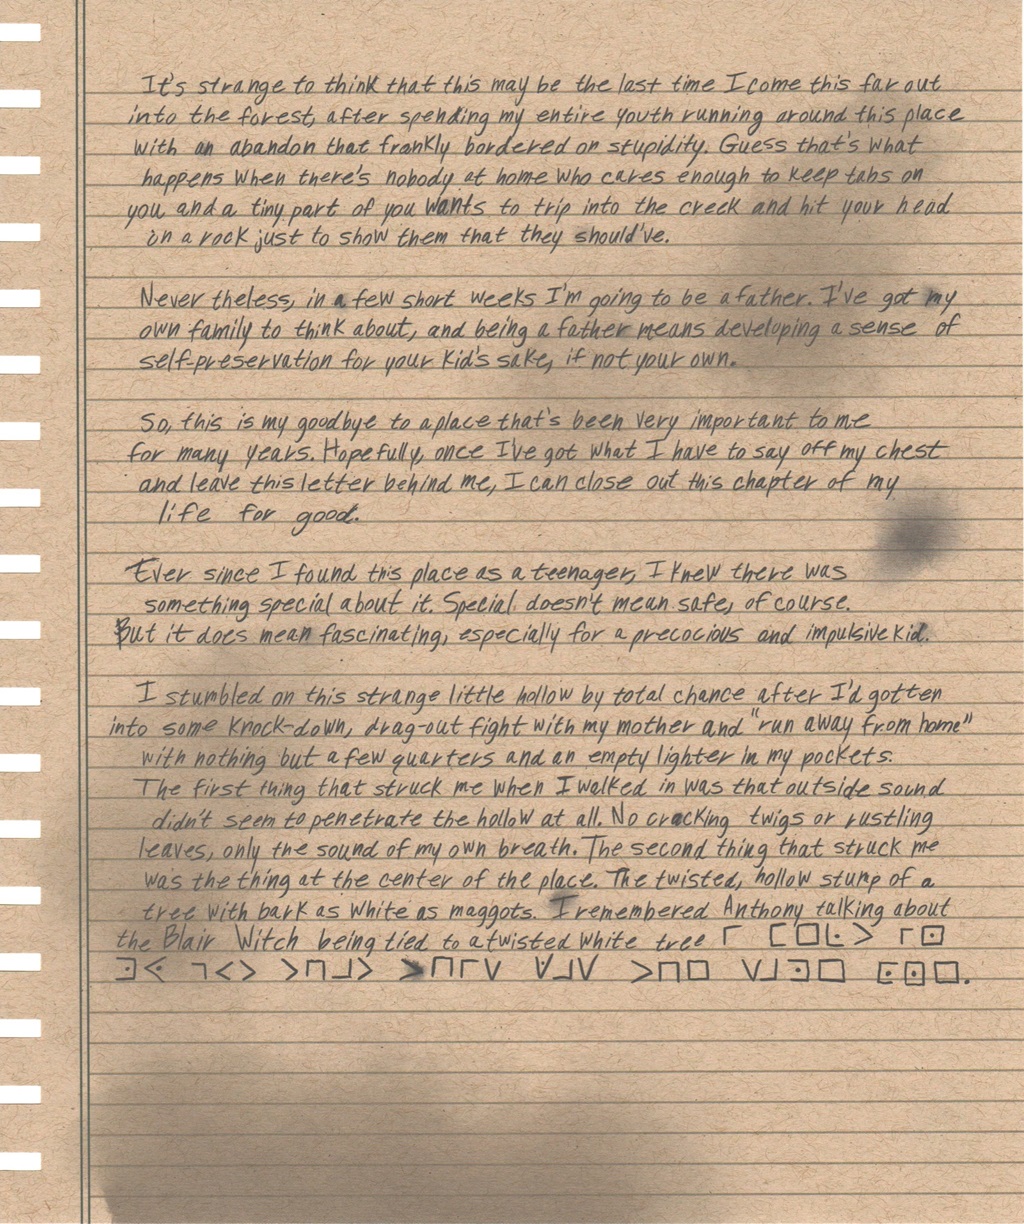 It's strange to think that this may be the last time I come this far out
into the forest, after spending my entire youth running around this place
with an abandon that frankly bordered on stupidity. Guess that's what
happens when there's nobody at home who cares enough to keep tabs on
you, and a tiny part of you wants to trip into the creek and hit your head
on a rock just to show them that they should've.
Never theless, in a few short weeks I'm going to be a father. I've got my
own family to think about, and being a father means developing a sense of
self-preservation for your kid's sake, if not your own.
So, this is my goodbye to a place that's been very important to me
for many years. Hopefully, once I've got what I have to say off my chest
and leave this letter behind me, I can close out this chapter of my
life for good.
Ever since I found this place as a teenager, I knew there was
something special about it. Special doesn't mean safe, of course.
But it does mean fascinating, especially for a precocious and impulsive kid.
I stumbled on this strange little hollow by total chance after I'd gotten
into some knock-down, drag-out fight with my mother and "run away from home"
with nothing but a few quarters and an empty lighter in my pockets.
The first thing that struck me when I walked in was that outside sound
didn't seem to penetrate the hollow at all. No cracking twigs or rustling
leaves, only the sound of my own breath. The second thing that struck me
was the thing at the center of the place. The twisted, hollow stump of a
tree with bark as white as maggots. I remembered Anthony talking about
the Blair Witch being tied to a twisted white tree